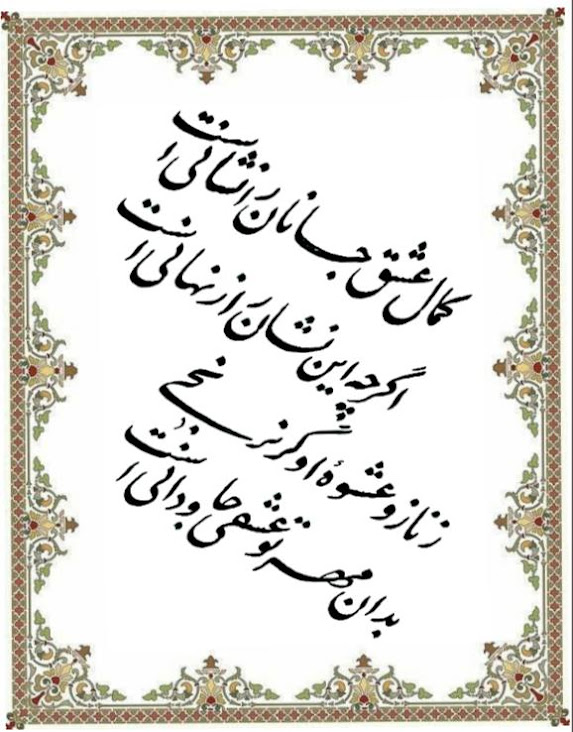 کمال عشق جانان را نشانی است
اگرچه این نشان راز نهانی است
ز ناز و عشوهٔ او گر نرنجی
بدان مهر تو عشقی جاودانی است